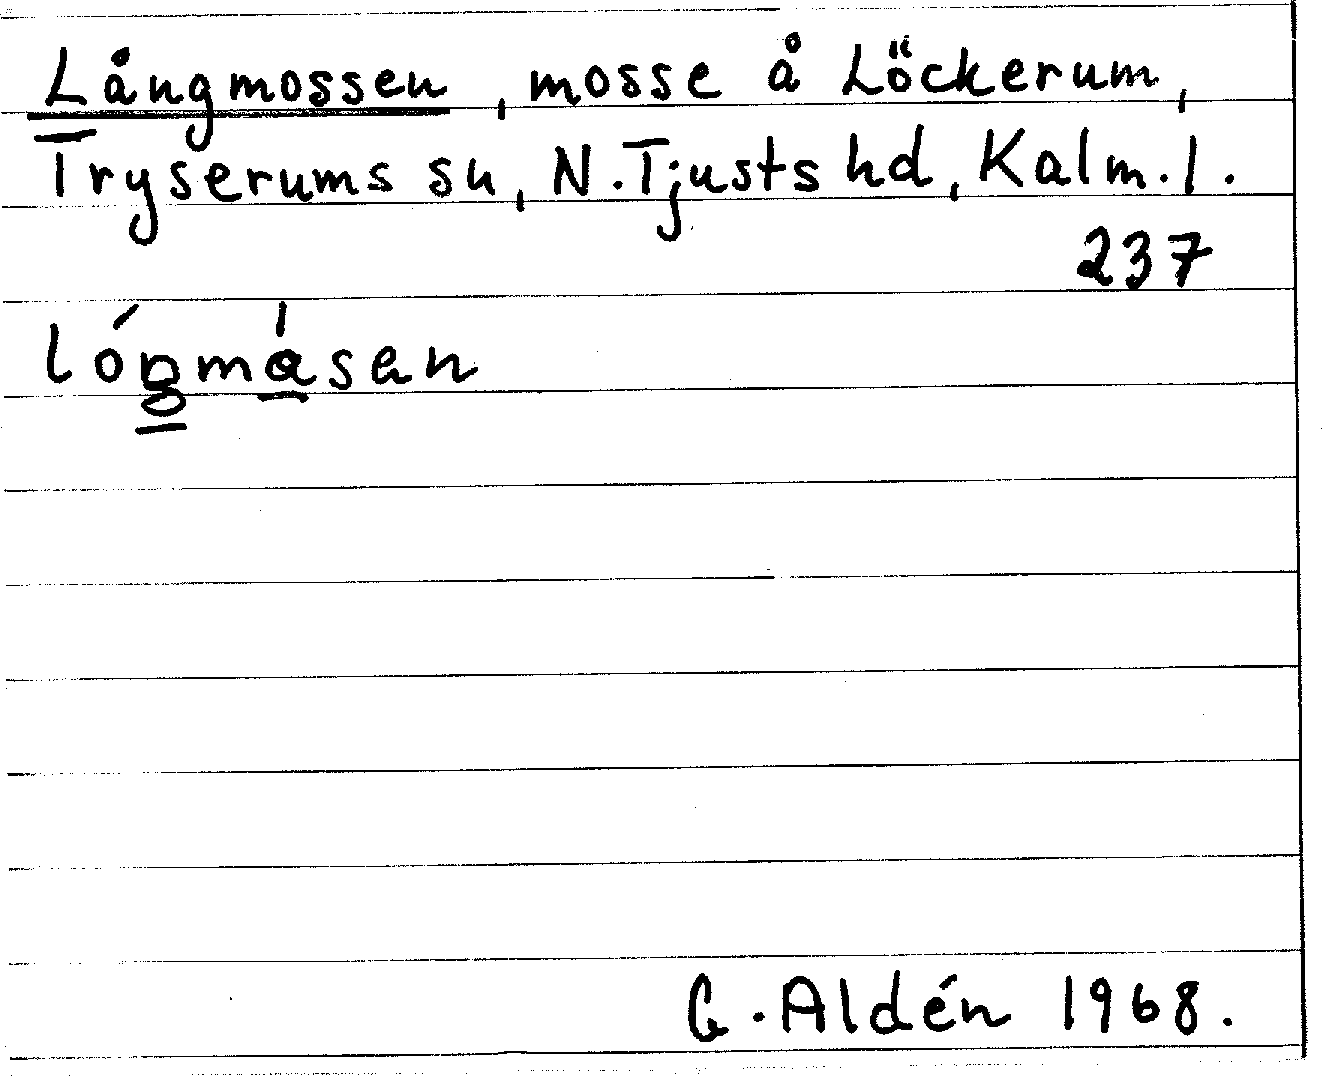 Långmossen, mosse å Löckerum,
Tryserums sn, N. Tjusts hd, Kalm. l.
237
lóŋmásan
G. Aldén 1968.